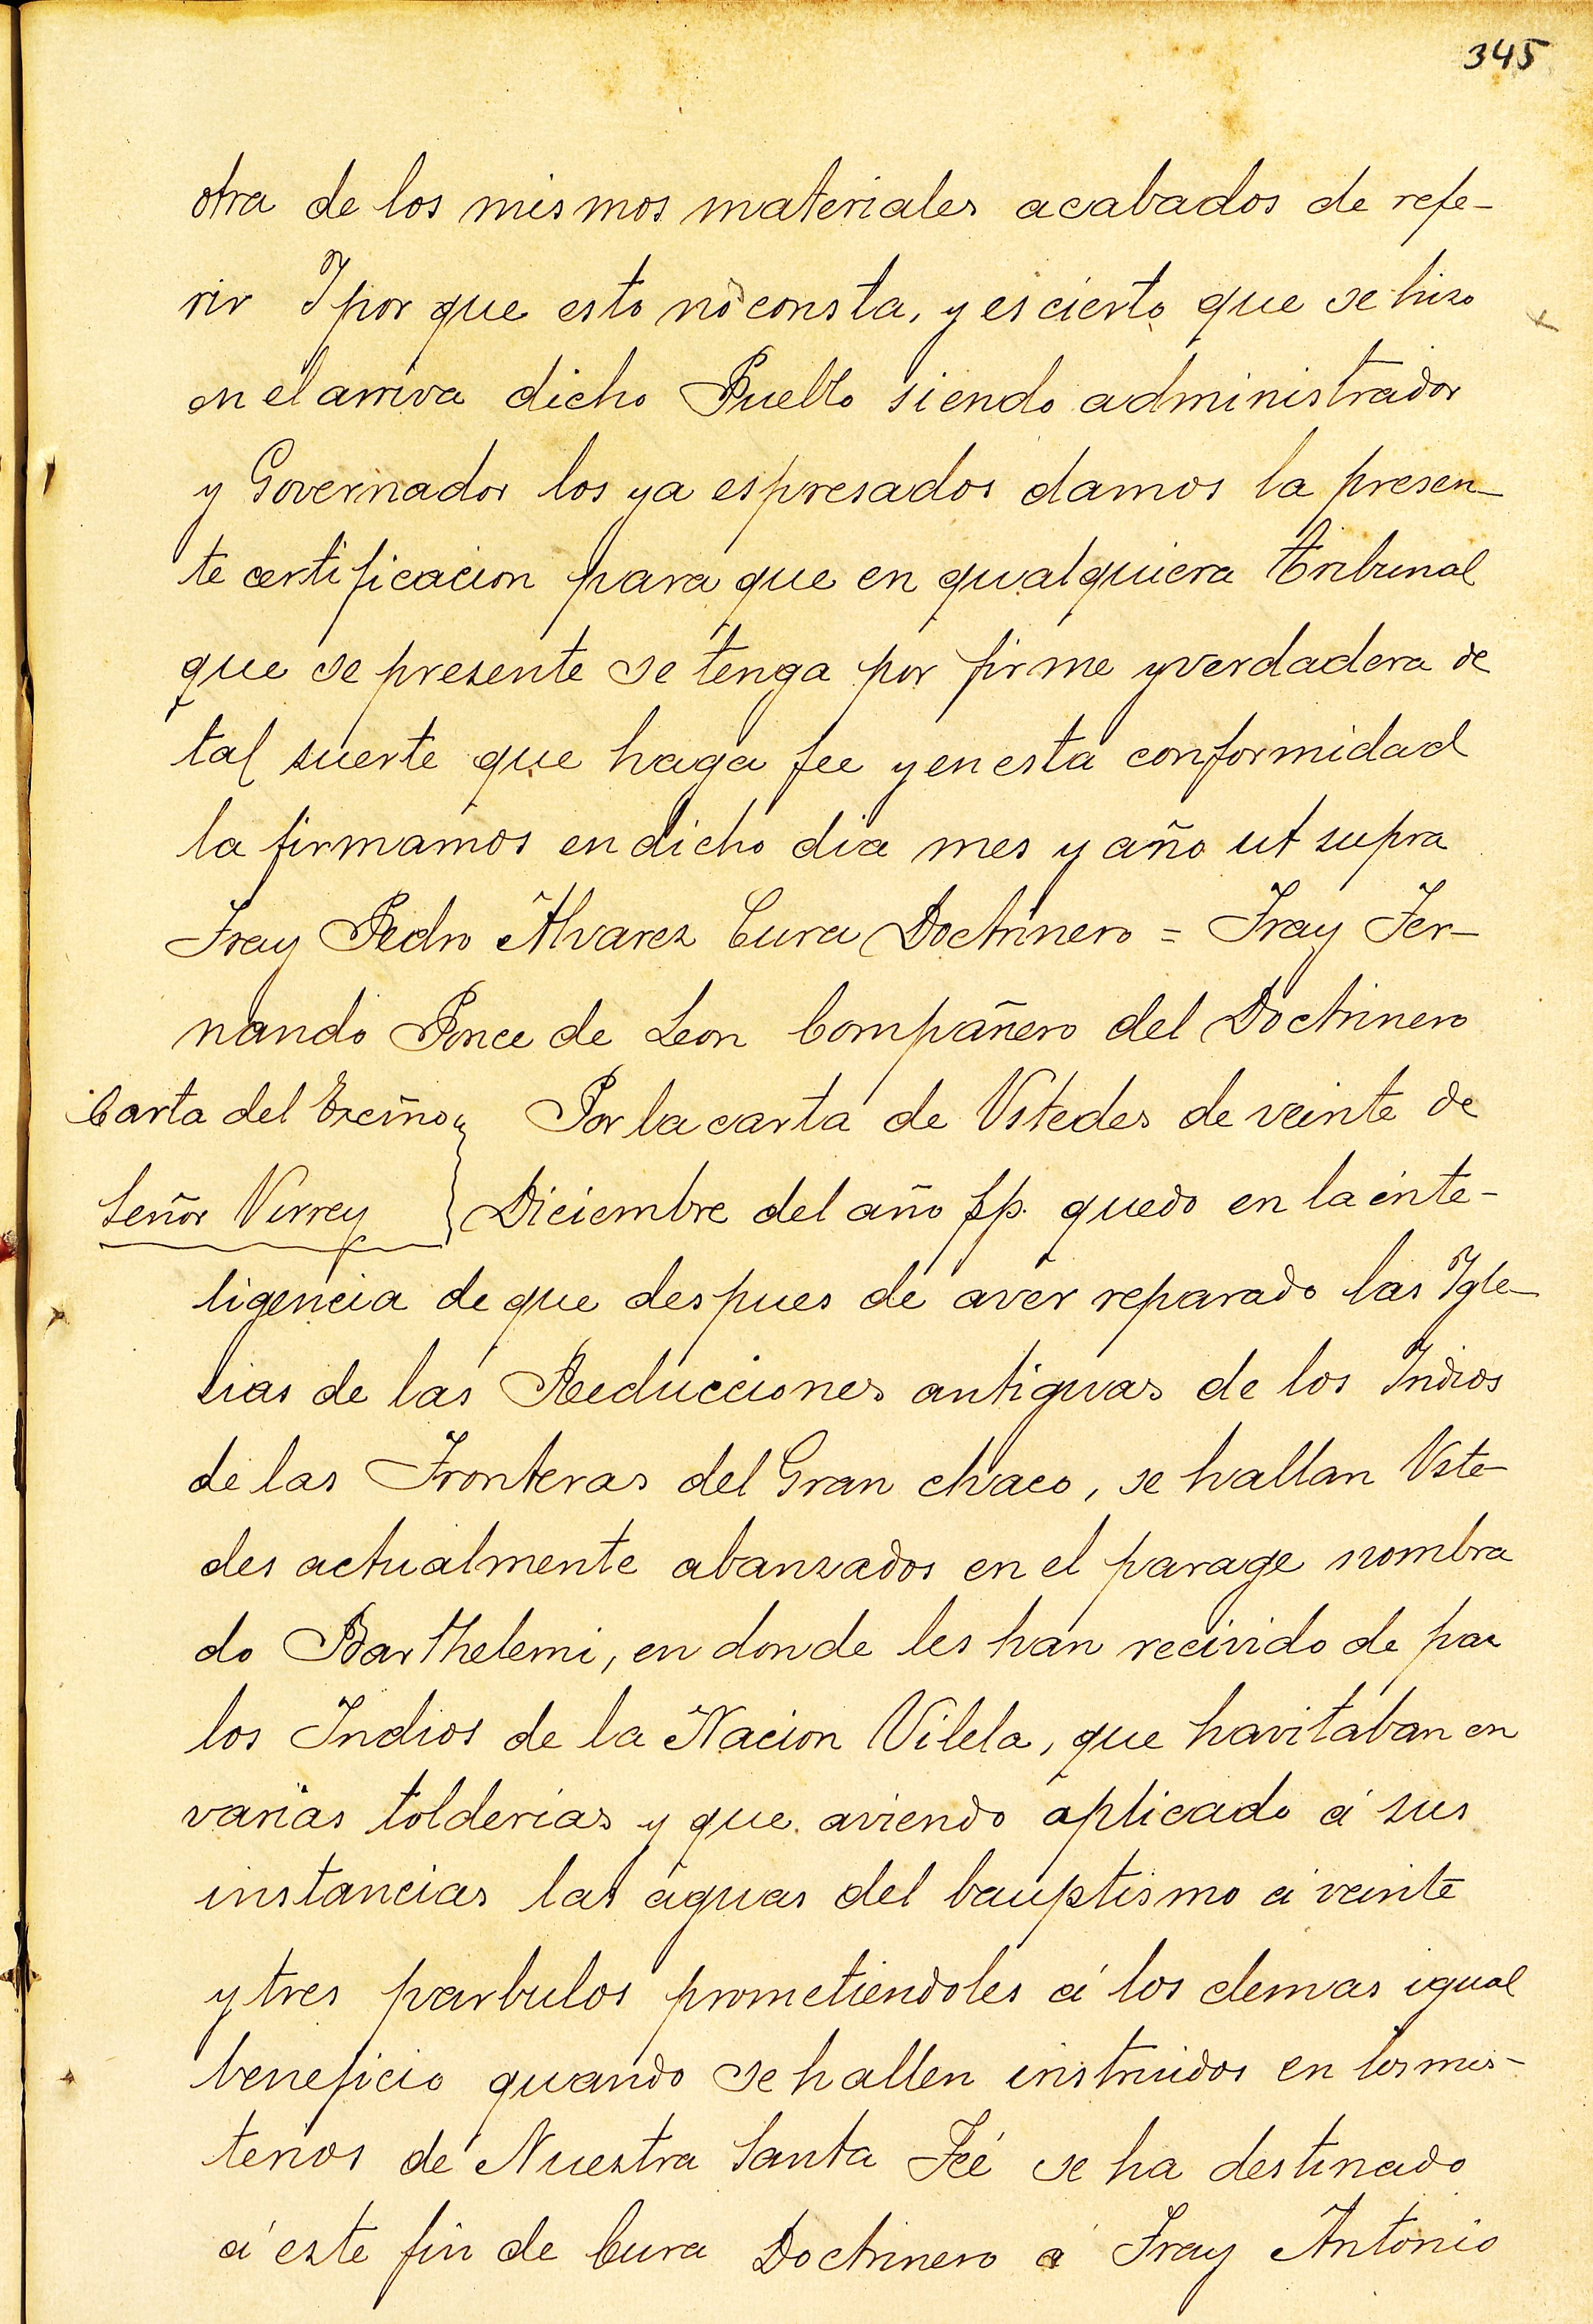 345
otra de los mismos materiales acabados de refe-
rir Y por que esto nò consta, y es cierto que se hizo
en el arriva dicho Pueblo siendo administrador
y Governador los ya espresados damos la presen-
te certificacion para que en qualquiera tribunal
que se presente se tenga por firme y verdadera de
tal suerte que haga fee y en esta conformidad
la firmamos en dicho dia mes y año ut supra
Fray Pedro Alvarez Cura Doctrinero = Fray Fer-
nando Ponce de Leon Compañero del Doctrinero
Carta del Excmo
Señor Virrey
Por la carta de Vstedes de veinte de
Diciembre del año pp. quedo en la inte-
ligencia de que despues de aver reparado las Ygle-
sias de las Reducciones antiguas de los Indios
de las Fronteras del Gran chaco, se hallan Vste-
des actualmente abanzados en el parage nombra
do Barthelemi, en donde les han recivido de paz
los Indios de la Nacion Vilela, que havitaban en
varias tolderias y que aviendo aplicado á sus
instancias las aguas del bauptismo á veinte
y tres parbulos prometiendoles á los demas igual
beneficio quando se hallen instruidos en los mis-
terios de Nuestra Santa Feé se ha destinado
á este fin de Cura Doctrinero á Fray Antonio